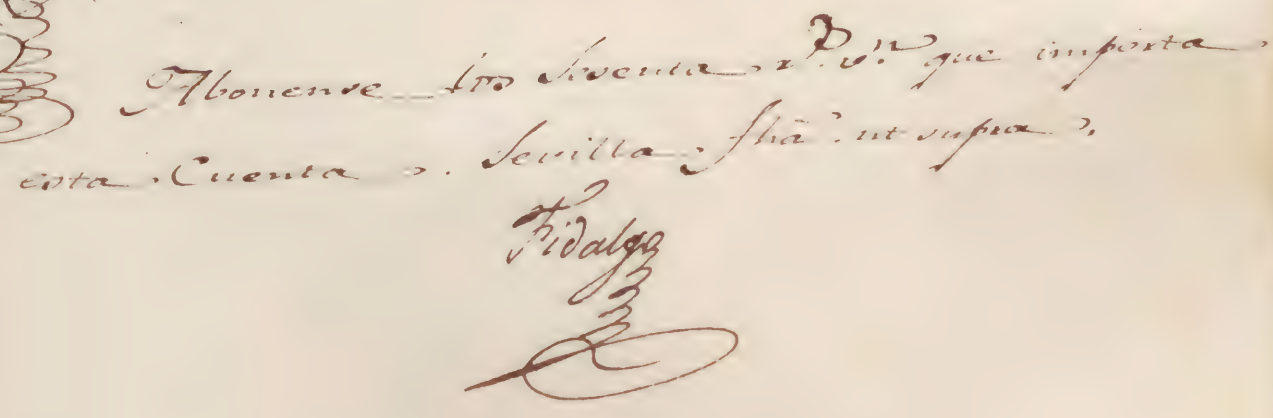 Abonense los Sesenta r.s v.n que importa
esta Cuenta. Sevilla fha ut supra.
Fidalgo